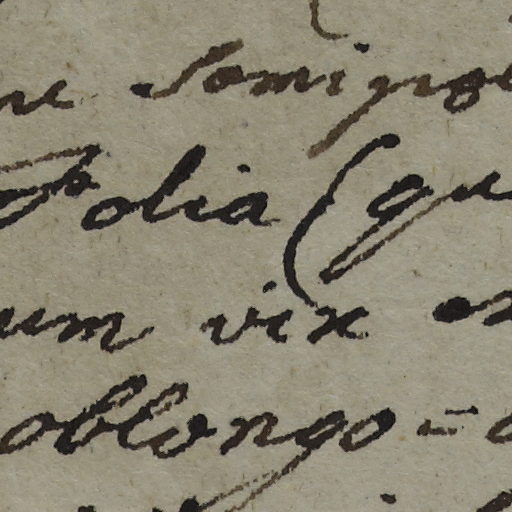 ne Somipo
Folia (qu
um vix ex
oblongo-